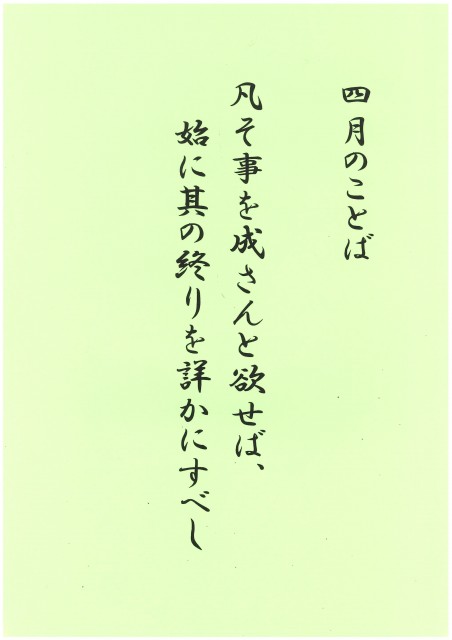 四月のことば
凡そ事を成さんと欲せば、
始に其の終りを詳かにすべし